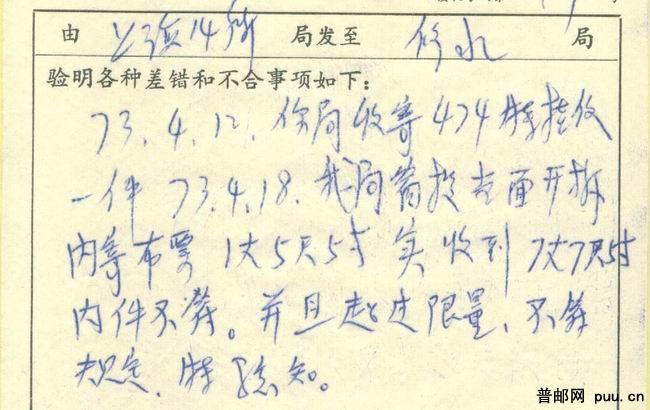 由 上海14所 局发至 修水 局
验明各种差错和不合事项如下:
73.4.12.你局收寄474特挂收
一件 73.4.18.我局窗投当面开拆
内寄布票1丈5尺5寸实收到7丈7尺5寸
内件不符。并且超过限量、不符
规定、特验知。
普邮网 puu.cn